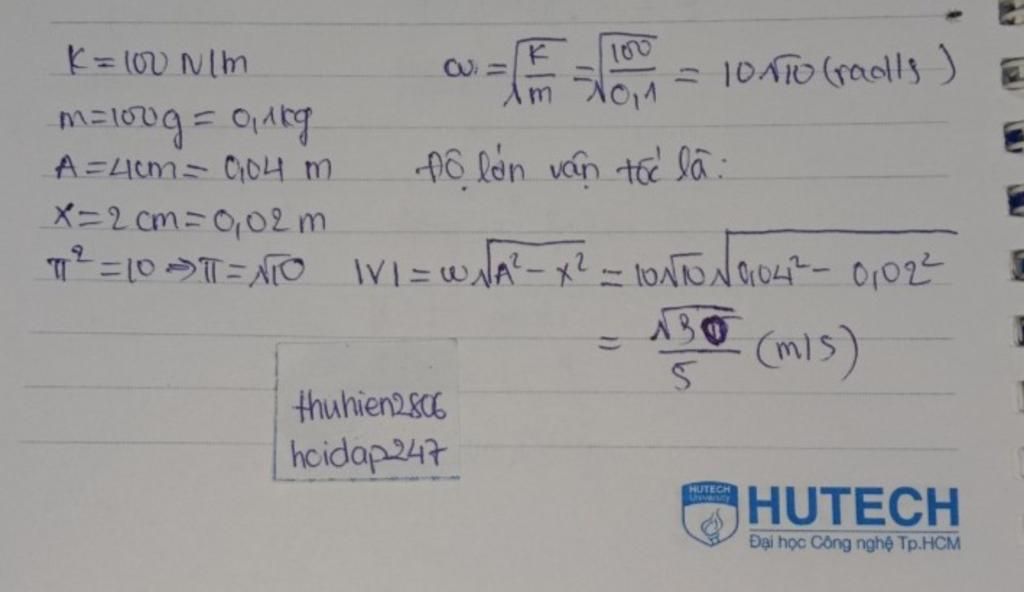 K = 100 N/m
m = 100g = 0,1kg
A = 4cm = 0,04 m
x = 2 cm = 0,02 m
π² = 10 => π = √10
ω = √(K/m) = √(100/0,1) = 10√10 (rad/s)
Độ lớn vận tốc là:
|v| = ω√(A² - x²) = 10√10 √(0,04² - 0,02²)
= √30/5 (m/s)
thuhien2806
hoidap247
HUTECH
University
HUTECH
Đại học Công nghệ Tp.HCM